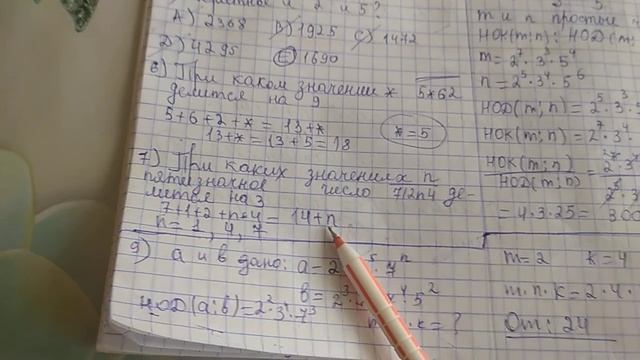 и 2 и 5?
А) 2368 В) 1925 С) 1472
Д) 4295 Е) 1690
6) При каком значении * 5*62
делится на 9
5+6+2+* = 13+*
13+* = 13+5 = 18
*=5
7) При каких значениях n
пятизначное число 712n4 де-
лится на 3
7+1+2+n+4 = 14+n
n = 1, 4, 7
9) а и в дано: а = 2
НОД(а;в) = 2² 3⁴ 7³
к = ?
m и n простые
НОК(m;n) : НОД(m;
m = 2⁷ · 3³ · 5⁴
n = 2⁵ · 3⁴ · 5⁶
НОД(m;n) = 2⁵ · 3³ ·
НОК(m;n) = 2⁷ · 3⁴ ·
НОК(m;n)
НОД(m;n)
= 4·3·25 = 300
m = 2 к = 4
m·n·к = 2·4·
От: 24